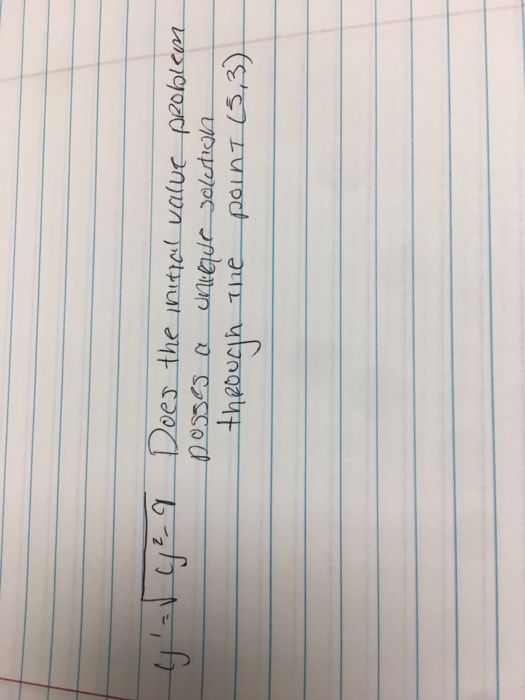 y' = √y²-9 Does the initial value problem
posses a unique solution
through the point (5,3)